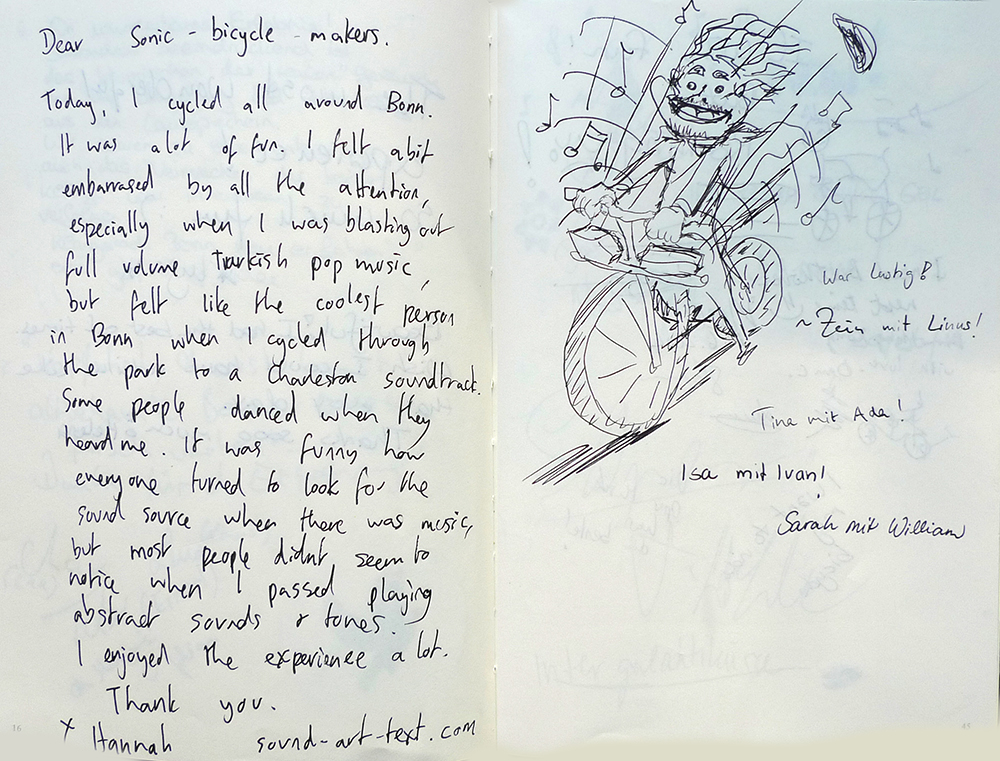 Dear Sonic-bicycle-makers.
Today, I cycled all around Bonn.
It was a lot of fun. I felt a bit
embarrased by all the attention,
especially when I was blasting out
full volume Turkish pop music,
but felt like the coolest person
in Bonn when I cycled through
the park to a Charleston soundtrack.
Some people danced when they
heard me. It was funny how
everyone turned to look for the
sound source when there was music,
but most people didnt seem to
notice when I passed playing
abstract sounds & tones.
I enjoyed the experience a lot.
Thank you.
x Hannah sound-art-text.com
16
War lustig!
~ Zein mit Linus!
Tina mit Ada!
Isa mit Ivan!
Sarah mit William